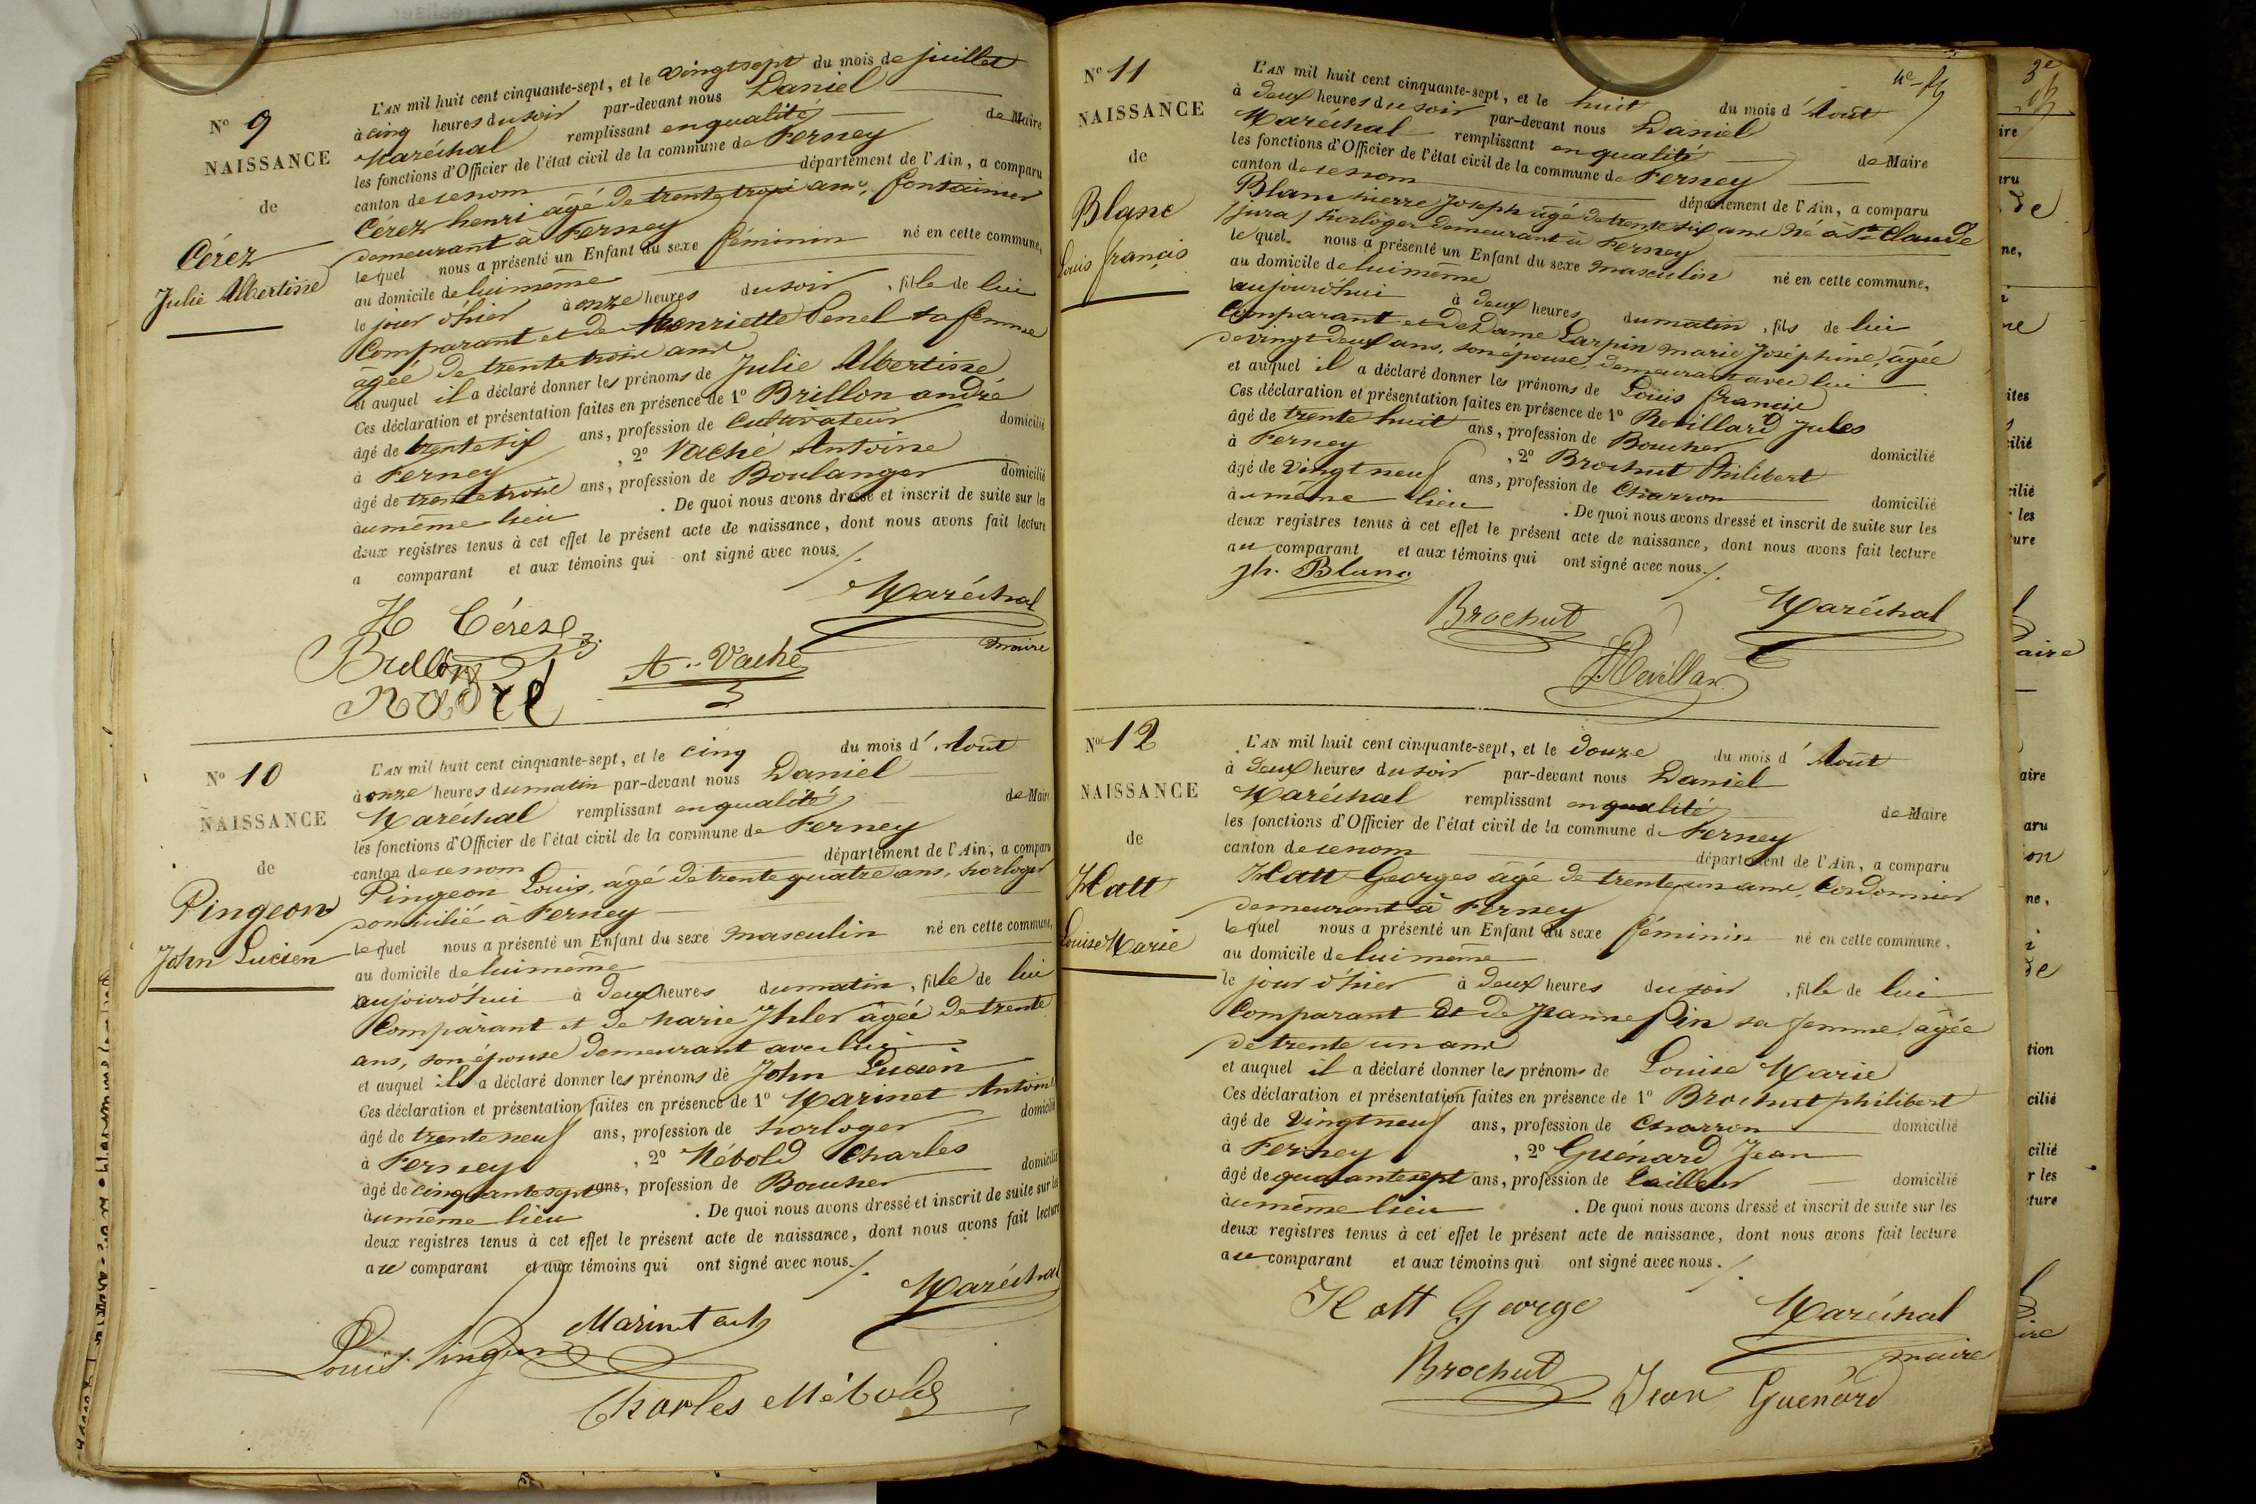 N° 9
NAISSANCE
de
Cérez
Julie Albertine
L'AN mil huit cent cinquante-sept, et le vingt sept du mois de juillet
à cinq heures du soir par-devant nous Daniel
Maréchal remplissant en qualité de Maire
les fonctions d'Officier de l'état civil de la commune de Ferney
canton de ce nom département de l'Ain, a comparu
Cérez henri âgé de trente trois ans, fontainier
demeurant à Ferney
lequel nous a présenté un Enfant du sexe féminin né en cette commune,
au domicile de lui même
le jour d'hier à onze heures du soir, fille de lui
Comparant et de henriette Penel sa femme
âgée de trente trois ans
et auquel il a déclaré donner les prénoms de Julie Albertine
Ces déclaration et présentation faites en présence de 1° Brillon andré
âgé de trente six ans, profession de Cultivateur domicilié
à Ferney, 2° Vaché Antoine
âgé de trente trois ans, profession de Boulanger domicilié
au même lieu. De quoi nous avons dressé et inscrit de suite sur les
deux registres tenus à cet effet le présent acte de naissance, dont nous avons fait lecture
a comparant et aux témoins qui ont signé avec nous./.
Maréchal
maire
H Cérez
Brillon
A. Vaché
N° 10
NAISSANCE
de
Pingeon
John Lucien
L'AN mil huit cent cinquante-sept, et le cinq du mois d'Août
à onze heures du matin par-devant nous Daniel
Maréchal remplissant en qualité de Maire
les fonctions d'Officier de l'état civil de la commune de Ferney
canton de ce nom département de l'Ain, a comparu
Pingeon Louis, âgé de trente quatre ans, horloger
domicilié à Ferney
lequel nous a présenté un Enfant du sexe masculin né en cette commune,
au domicile de lui même
aujourd'hui à deux heures du matin, fille de lui
Comparant et de Marie Ihler âgée de trente
ans, son épouse demeurant avec lui
et auquel il a déclaré donner les prénoms de John Lucien
Ces déclaration et présentation faites en présence de 1° Marinet Antoine
âgé de trente neuf ans, profession de horloger domicilié
à Ferney, 2° Mébold Charles
âgé de cinquante sept ans, profession de Boucher domicilié
au même lieu. De quoi nous avons dressé et inscrit de suite sur les
deux registres tenus à cet effet le présent acte de naissance, dont nous avons fait lecture
au comparant et aux témoins qui ont signé avec nous./.
Maréchal
Louis Pingeon
Charles Mébold
N° 11
NAISSANCE
de
Blanc
Louis françois
L'AN mil huit cent cinquante-sept, et le huit du mois d'Août
à deux heures du soir par-devant nous Daniel
Maréchal remplissant en qualité de Maire
les fonctions d'Officier de l'état civil de la commune de Ferney
canton de ce nom département de l'Ain, a comparu
Blanc pierre Joseph âgé de trente six ans né à St Claude
(jura) horloger demeurant à Ferney
lequel nous a présenté un Enfant du sexe masculin né en cette commune,
au domicile de lui même
aujourd'hui à deux heures du matin, fils de lui
Comparant et de Dame Larpin marie Joséphine, âgée
de vingt deux ans, son épouse, demeurant avec lui
et auquel il a déclaré donner les prénoms de Louis françois
Ces déclaration et présentation faites en présence de 1° Revillard Jules
âgé de trente huit ans, profession de Boucher
à Ferney, 2° Brochut Philibert domicilié
âgé de vingt neuf ans, profession de Charron domicilié
au même lieu. De quoi nous avons dressé et inscrit de suite sur les
deux registres tenus à cet effet le présent acte de naissance, dont nous avons fait lecture
au comparant et aux témoins qui ont signé avec nous./.
Jh. Blanc
Brochut
Maréchal
N° 12
NAISSANCE
de
Hatt
Louise Marie
L'AN mil huit cent cinquante-sept, et le douze du mois d'Août
à deux heures du soir par-devant nous Daniel
Maréchal remplissant en qualité de Maire
les fonctions d'Officier de l'état civil de la commune de Ferney
canton de ce nom département de l'Ain, a comparu
Hatt Georges âgé de trente un ans, Cordonnier
demeurant à Ferney
lequel nous a présenté un Enfant du sexe féminin né en cette commune,
au domicile de lui même
le jour d'hier à deux heures du soir, fille de lui
Comparant Et de Jeanne Pin sa femme, âgée
de trente un ans
et auquel il a déclaré donner les prénoms de Louise Marie
Ces déclaration et présentation faites en présence de 1° Brochut philibert
âgé de vingt neuf ans, profession de Charron domicilié
à Ferney, 2° Guénard Jean
âgé de quarante sept ans, profession de tailleur domicilié
au même lieu. De quoi nous avons dressé et inscrit de suite sur les
deux registres tenus à cet effet le présent acte de naissance, dont nous avons fait lecture
au comparant et aux témoins qui ont signé avec nous./.
Hatt George
Maréchal
maire
Brochut
Jean Guenard